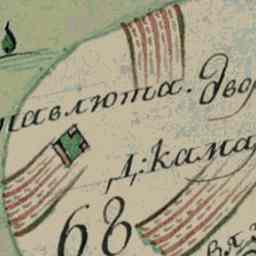 павлюта. Дво
Д: Кама
68
вяз